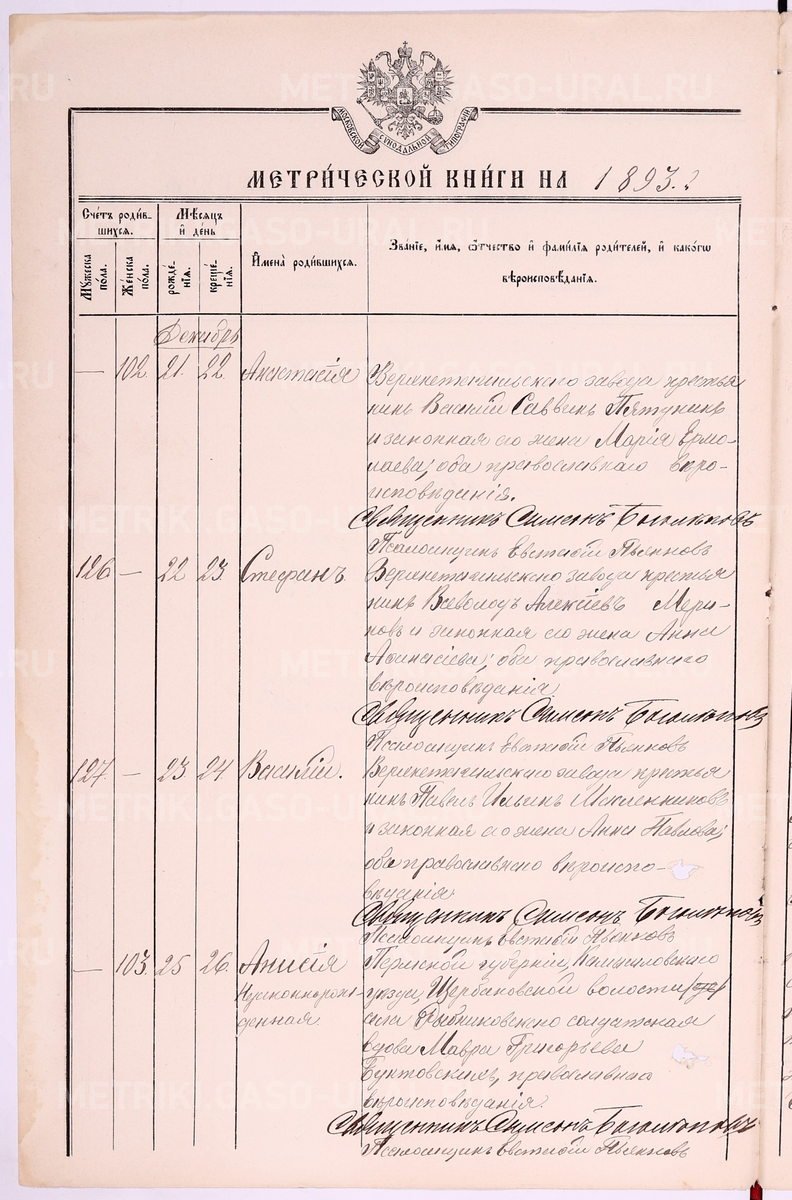 МОСКОВСКОЙ СѴНОДАЛЬНОЙ ТИПОГРАФІИ
МЕТРИ́ЧЕСКОЙ КНИ́ГИ НА 1893 г.
Сче́тъ роди́вшихся.
Мѣ́сяцъ и҆ де́нь
Мꙋ́жеска по́ла.
Же́нска по́ла.
рожде́нїѧ.
креще́нїѧ.
И҆мена̀ роди́вшихся.
Зва́нїе, и҆́мѧ, ѻ҆́тчество и҆ фами́лїѧ роди́телей, и҆ како́гѡ вѣроисповѣ́данїѧ.
Декабрь
— 102. 21. 22. Анастасія
Верхнетагильскаго завода крестья
нинъ Василій Саввинъ Пятунинъ
и законная его жена Марія Ермо-
лаева; оба православнаго вѣро-
исповѣданія.
Священникъ Симеонъ Богомоловъ
Псаломщикъ Евстафій Пьянковъ
126 — 22 23. Стефанъ
Верхнетагильскаго завода крестья
нинъ Всеволодъ Алексіевъ
и законная его жена Анна
Афанасіева; оба православнаго
вѣроисповѣданія
Священникъ Симеонъ
Псаломщикъ Евстафій Пьянковъ
127 — 23 24 Василій.
Верхнетагильскаго завода крестья
нинъ Павелъ Ильинъ
и законная его жена Анна Павлова;
оба православнаго вѣроиспо-
вѣданія
Священникъ Симеонъ
Псаломщикъ Евстафій Пьянковъ
— 103. 25 26. Анисія
Незаконнорож-
денная.
Пермской губерніи, Камышловскаго
уѣзда, Щербаковской волости
села Рыбниковскаго солдатская
вдова Мавра Григорьева
православнаго
вѣроисповѣданія.
Священникъ Симеонъ
Псаломщикъ Евстафій Пьянковъ
METRIKI.GASO-URAL.RU